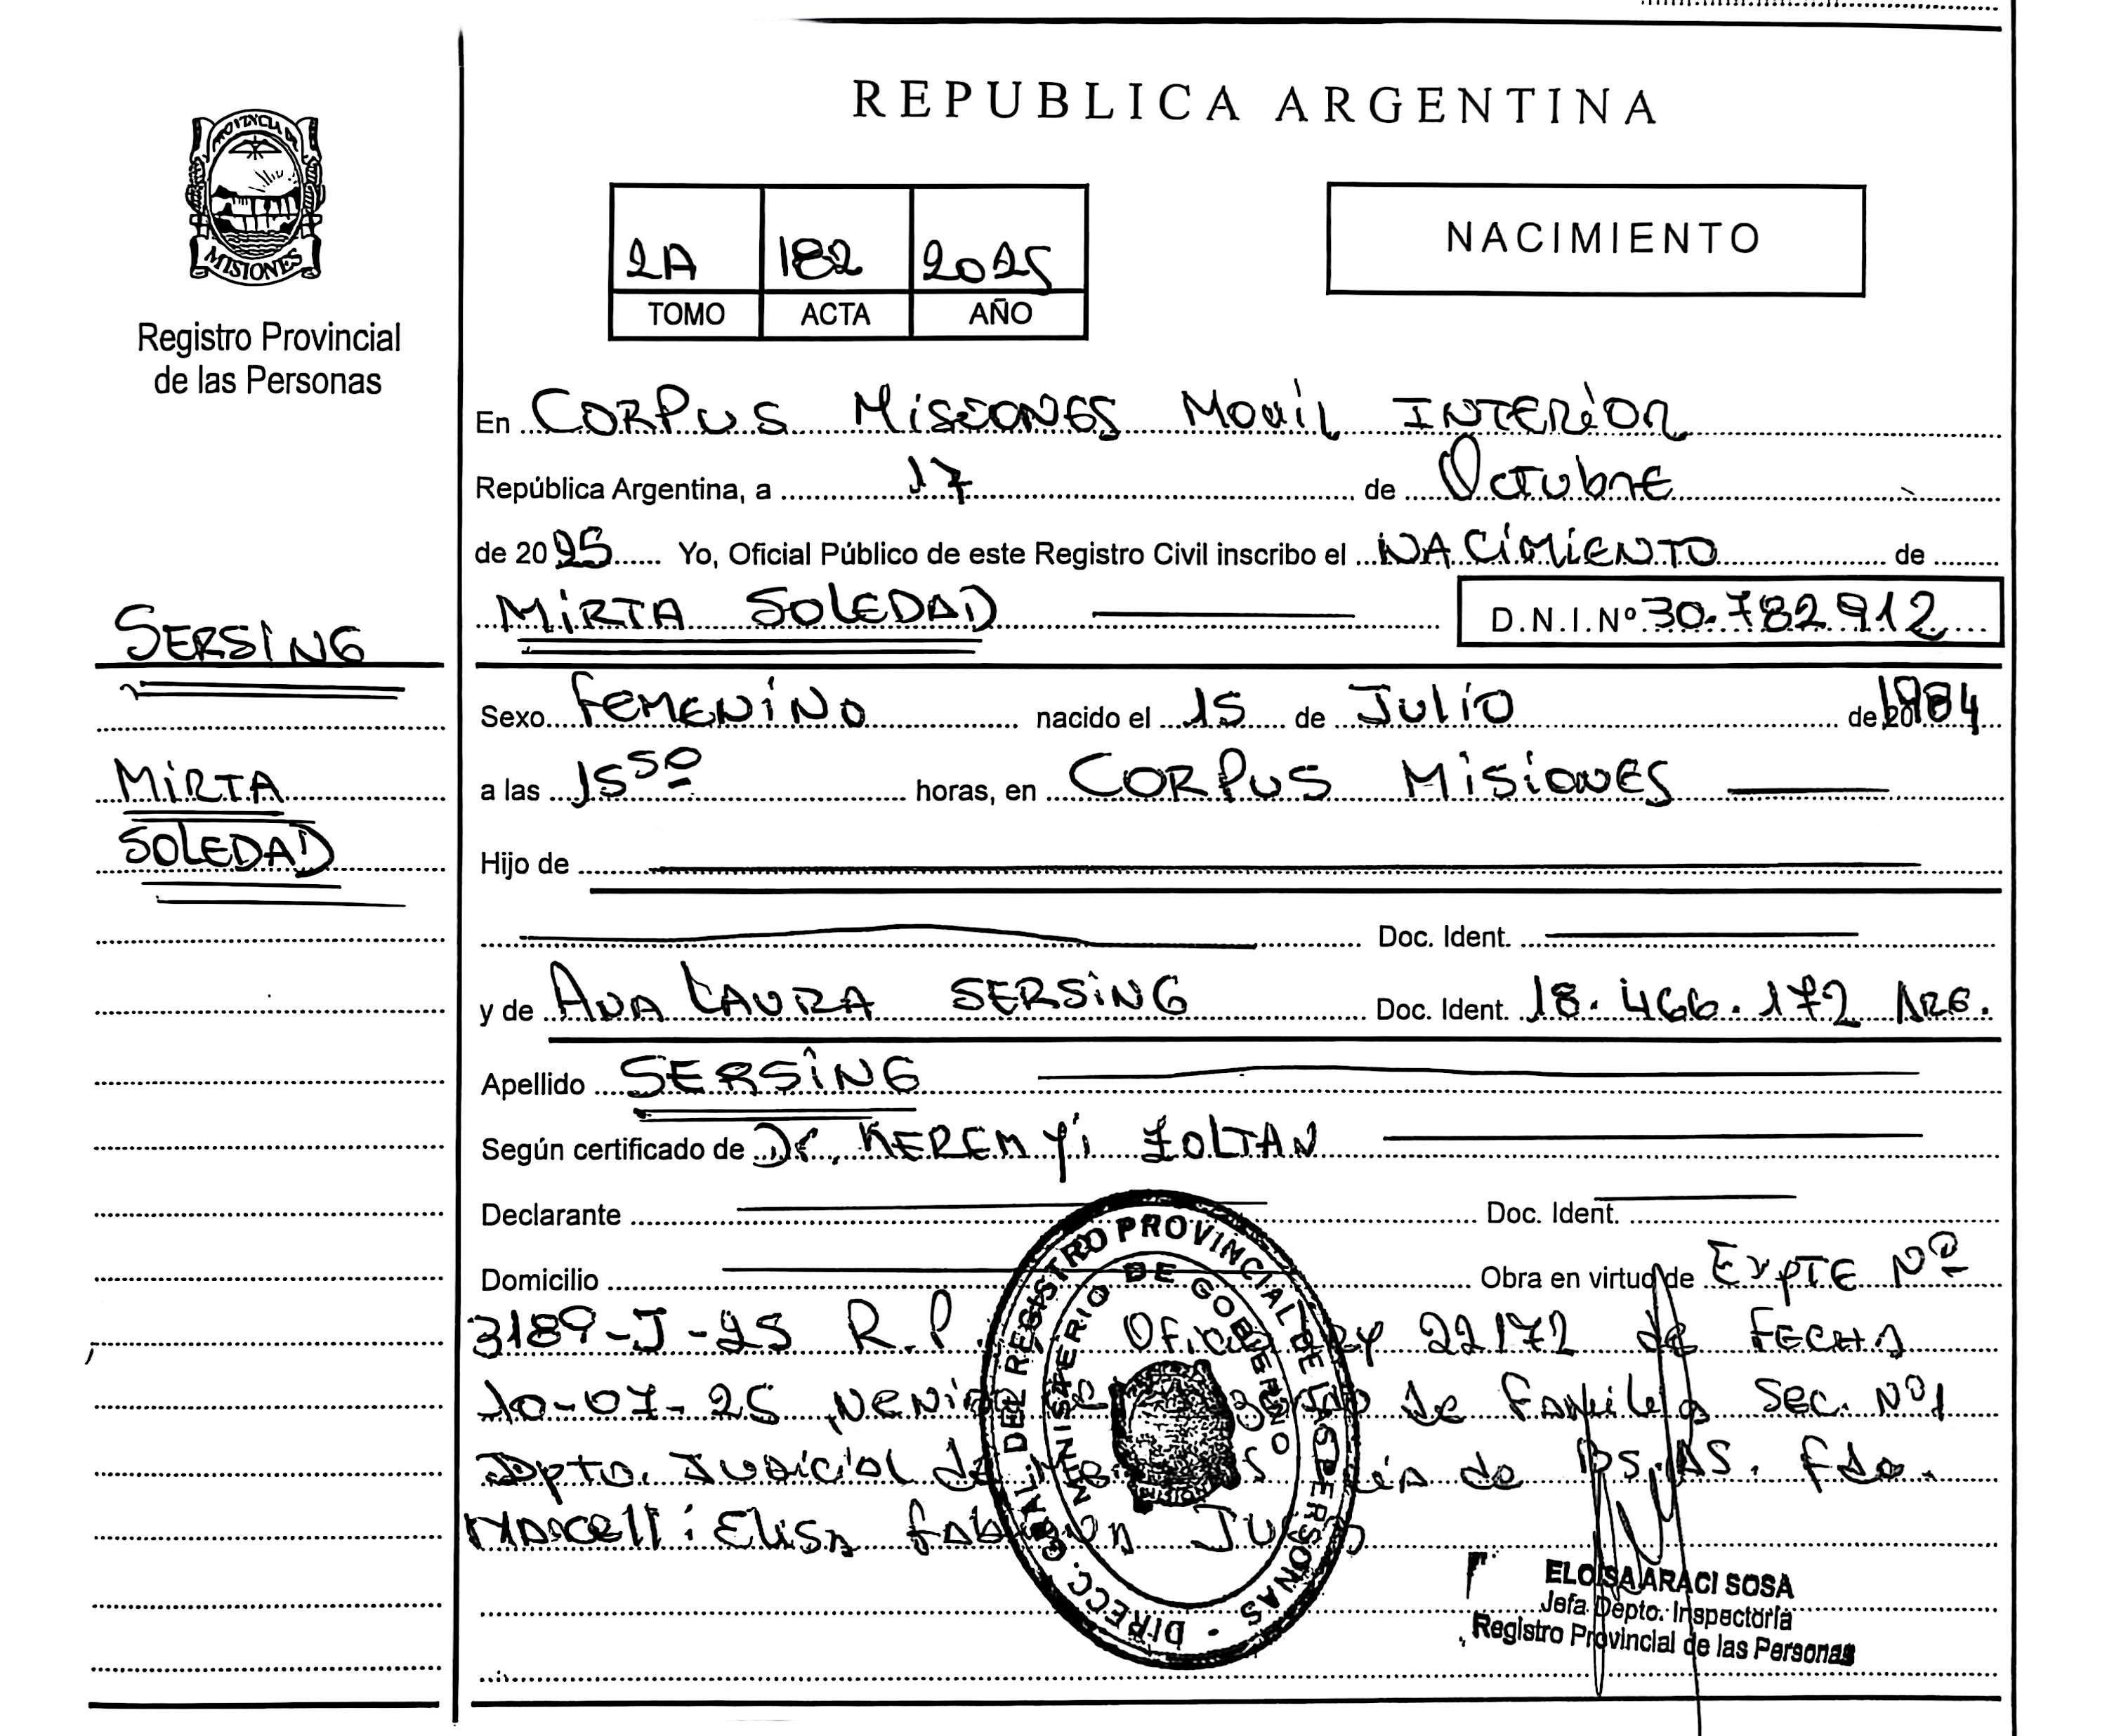 REPUBLICA ARGENTINA
PROVINCIA DE
MISIONES
Registro Provincial
de las Personas
2A 182 2025
TOMO ACTA AÑO
NACIMIENTO
En CORPUS MISIONES MOVIL INTERIOR
República Argentina, a 17 de Octubre
de 2025 Yo, Oficial Público de este Registro Civil inscribo el NACIMIENTO de
MIRTA SOLEDAD D.N.I.Nº 30.782.912
SERSING
MIRTA
SOLEDAD
Sexo FEMENINO nacido el 15 de JULIO de 20 1984
a las 15 50 horas, en CORPUS MISIONES
Hijo de
Doc. Ident.
y de ANA LAURA SERSING Doc. Ident. 18.466.172 ARG.
Apellido SERSING
Según certificado de Dr. KEREMYI ZOLTAN
Declarante Doc. Ident.
Domicilio Obra en virtud de EXPTE Nº
3189-J-25 R.P. Oficio Ley 22172 de FECHA
10-07-25 de Familia Sec. Nº1
Dpto. Judicial de de BS.AS. Fdo.
Marcelli Elisa Fabiana
DIRECC. GRAL. DEL REGISTRO PROVINCIAL DE LAS PERSONAS
MINISTERIO DE GOBIERNO
ELOISA ARACI SOSA
Jefa Depto. Inspectoría
Registro Provincial de las Personas